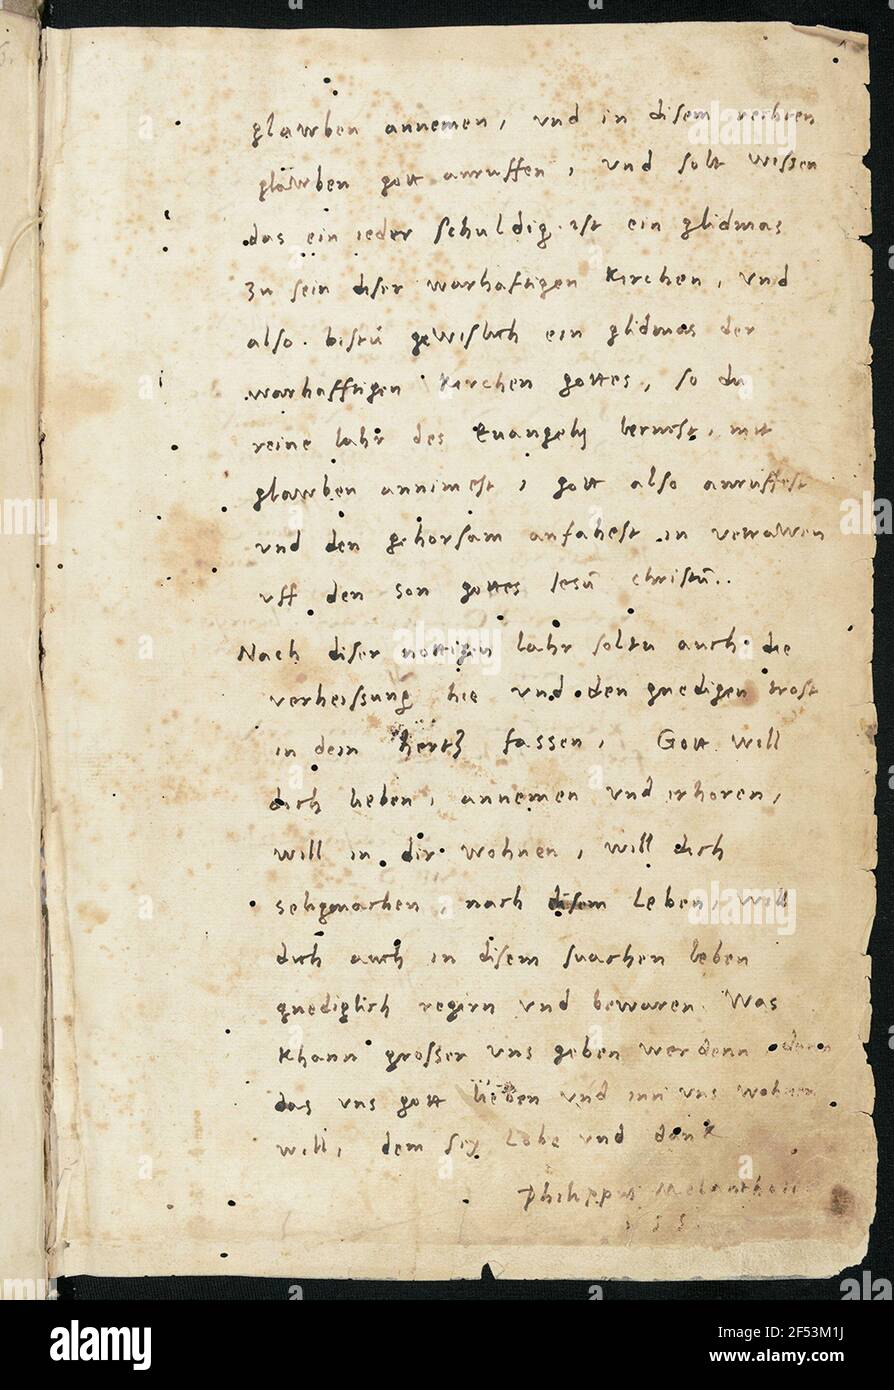 glawben annemen, vnd in disem rechten
glawben gott anruffen, vnd solt wissen
das ein ieder schuldig ist ein glidmas
zu sein diser warhafftigen Kirchen, vnd
also bistu gewislich ein glidmas der
warhafftigen Kirchen gottes, so du
reine lahr des Euangelij lernest, mit
glawben annimest, gott also anruffest
vnd den gehorsam anfahest in vertrawen
vff den son gottes Iesū christū..
Nach diser nottigen lahr soltu auch die
verheissung hie vnd den gnedigen trost
in dein hertz fassen, Gott will
dich lieben, annemen vnd erhoren,
will in dir wohnen, will dich
seligmachen, nach disem leben, will
dich auch in disem swachen leben
gnediglich regirn vnd bewaren. Was
khann grosser vns geben werdenn, dann
das vns gott lieben vnd inn vns wohnen
will, dem sey Lobe vnd dank
Philippus Melanthon
alamy
Image ID: 2F53M1J
www.alamy.com